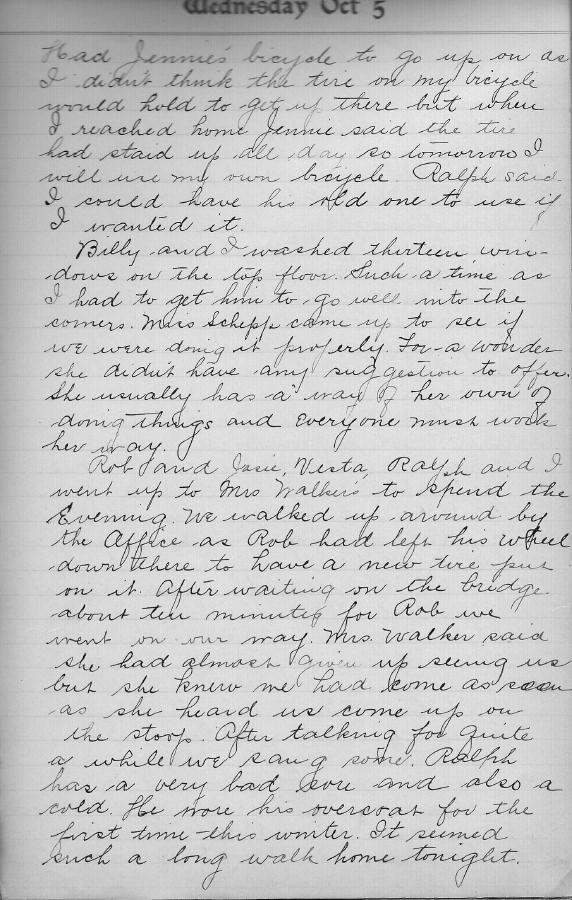 Wednesday Oct 5
Had Jennie's bicycle to go up on as
I didn't think the tire on my bicycle
would hold to get up there but when
I reached home Jennie said the tire
had staid up all day so tomorrow I
will use my own bicycle. Ralph said
I could have his old one to use if
I wanted it.
Billy and I washed thirteen win-
dows on the top floor. Such a time as
I had to get him to go well into the
corners. Miss Schepp came up to see if
we were doing it properly. For a wonder
she didn't have any suggestion to offer.
She usually has a way of her own of
doing things and everyone must work
her way.
Rob and Josie, Vesta, Ralph and I
went up to Mrs Walker's to spend the
Evening. We walked up around by
the Office as Rob had left his wheel
down there to have a new tire put
on it. After waiting on the bridge
about ten minutes for Rob we
went on our way. Mrs. Walker said
she had almost given up seeing us
but she knew we had come as soon
as she heard us come up on
the stoop. After talking for quite
a while we sang some. Ralph
has a very bad sore and also a
cold. He wore his overcoat for the
first time this winter. It seemed
such a long walk home tonight.